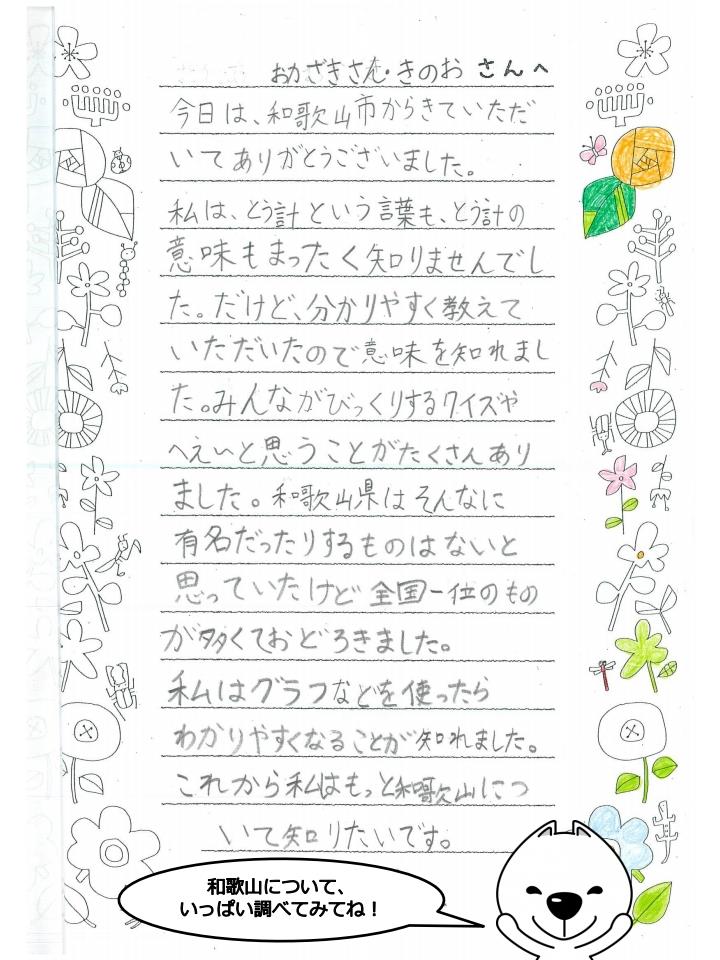 おかざきさん・きのお さんへ
今日は、和歌山市からきていただ
いてありがとうございました。
私は、とう計という言葉も、とう計の
意味もまったく知りませんでし
た。だけど、分かりやすく教えて
いただいたので意味を知れまし
た。みんながびっくりするクイズや
へえいと思うことがたくさんあり
ました。和歌山県はそんなに
有名だったりするものはないと
思っていたけど全国一位のもの
が多くておどろきました。
私はグラフなどを使ったら
わかりやすくなることが知れました。
これから私はもっと和歌山につ
いて知りたいです。
和歌山について、
いっぱい調べてみてね！